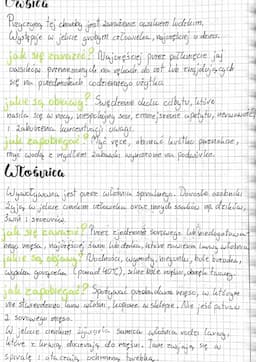 Owsica
Przyczyną tej choroby jest zarażenie owsikiem ludzkim.
Występuje w jelicie grubym człowieka, najczęściej u dzieci.
jak się zarazić? Najczęściej przez połknięcie jaj
owsików przenoszonych na rękach do ust lub znajdujących
się na przedmiotach codziennego użytku.
jakie są objawy? Swędzenie okolic odbytu, które
nasila się w nocy, niespokojny sen, zmniejszenie apetytu, nerwowość
i zaburzenia koncentracji uwagi.
jak zapobiegać? Myć ręce, obcinać krótko paznokcie,
myć wodą z mydłem zabawki
Włośnica
Wywoływana jest przez włośnia spiralnego. Dorosłe osobniki
żyją w jelicie cienkim człowieka oraz innych ssaków np. dzików,
świń i szczurów.
jak się zarazić? Przez zjedzenie surowego lub niedogotowanego
mięsa, najczęściej świni lub dzika, które zawiera larwy włośnia.
jakie są objawy? Nudności, wymioty, biegunka, bóle brzucha,
wysoka gorączka (ponad 40°C), silne bóle mięśni,
jak zapobiegać? Spożywać przebadane mięso, w którym
nie stwierdzono larw włośni, kupione w sklepie. Nie jeść potraw
z surowego mięsa.
W jelicie cienkim żywiciela samica włośnia rodzi larwy,
które z krwią docierają do mięśni. Tam zwijają się w
spiralę i otaczają ochronną torebką.